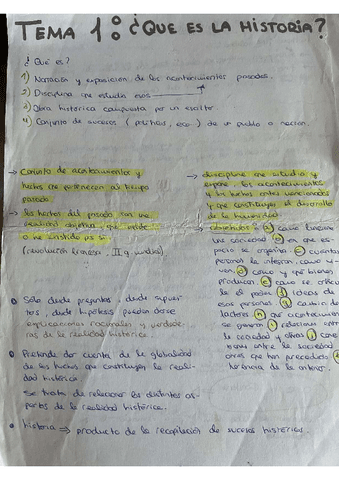 TEMA 1: ¿QUE ES LA HISTORIA?
¿Que es?
1) Narración y exposición de los acontecimientos pasados.
2) Disciplina que estudia esos
3) Obra histórica compuesta por un escritor
4) Conjunto de sucesos (políticos, eco.) de un pueblo o nación.
→ Conjunto de acontecimientos y
hechos que pertenecen al tiempo
pasado
→ los hechos del pasado son una
realidad objetiva que existe
o ha existido
(revolución francesa, II g. mundial)
• Solo desde preguntas, desde supues-
tos, desde hipótesis pueden darse
explicaciones racionales y verdade-
ras de la realidad histórica.
• Pretende dar cuenta de la globalidad
de los hechos que constituyen la reali-
dad histórica
Se trata de relacionar los distintos as-
pectos de la realidad histórica.
• historia → producto de la recopilación de sucesos históricos.
→ disciplina que estudia y
expone los acontecimientos
y los hechos antes mencionados
y que constituyen el desarrollo
de la humanidad
como funciona
una sociedad en que es-
pacio se organiza cuantas
personas la integran, como vi-
ven como y que bienes
producen como se articu-
la el poder ideas de
esas personas cambio de
factores que acontecimientos
se generan relaciones entre
la sociedad y otras
entre la sociedad
otras que han precedido
herencia de la anterior.